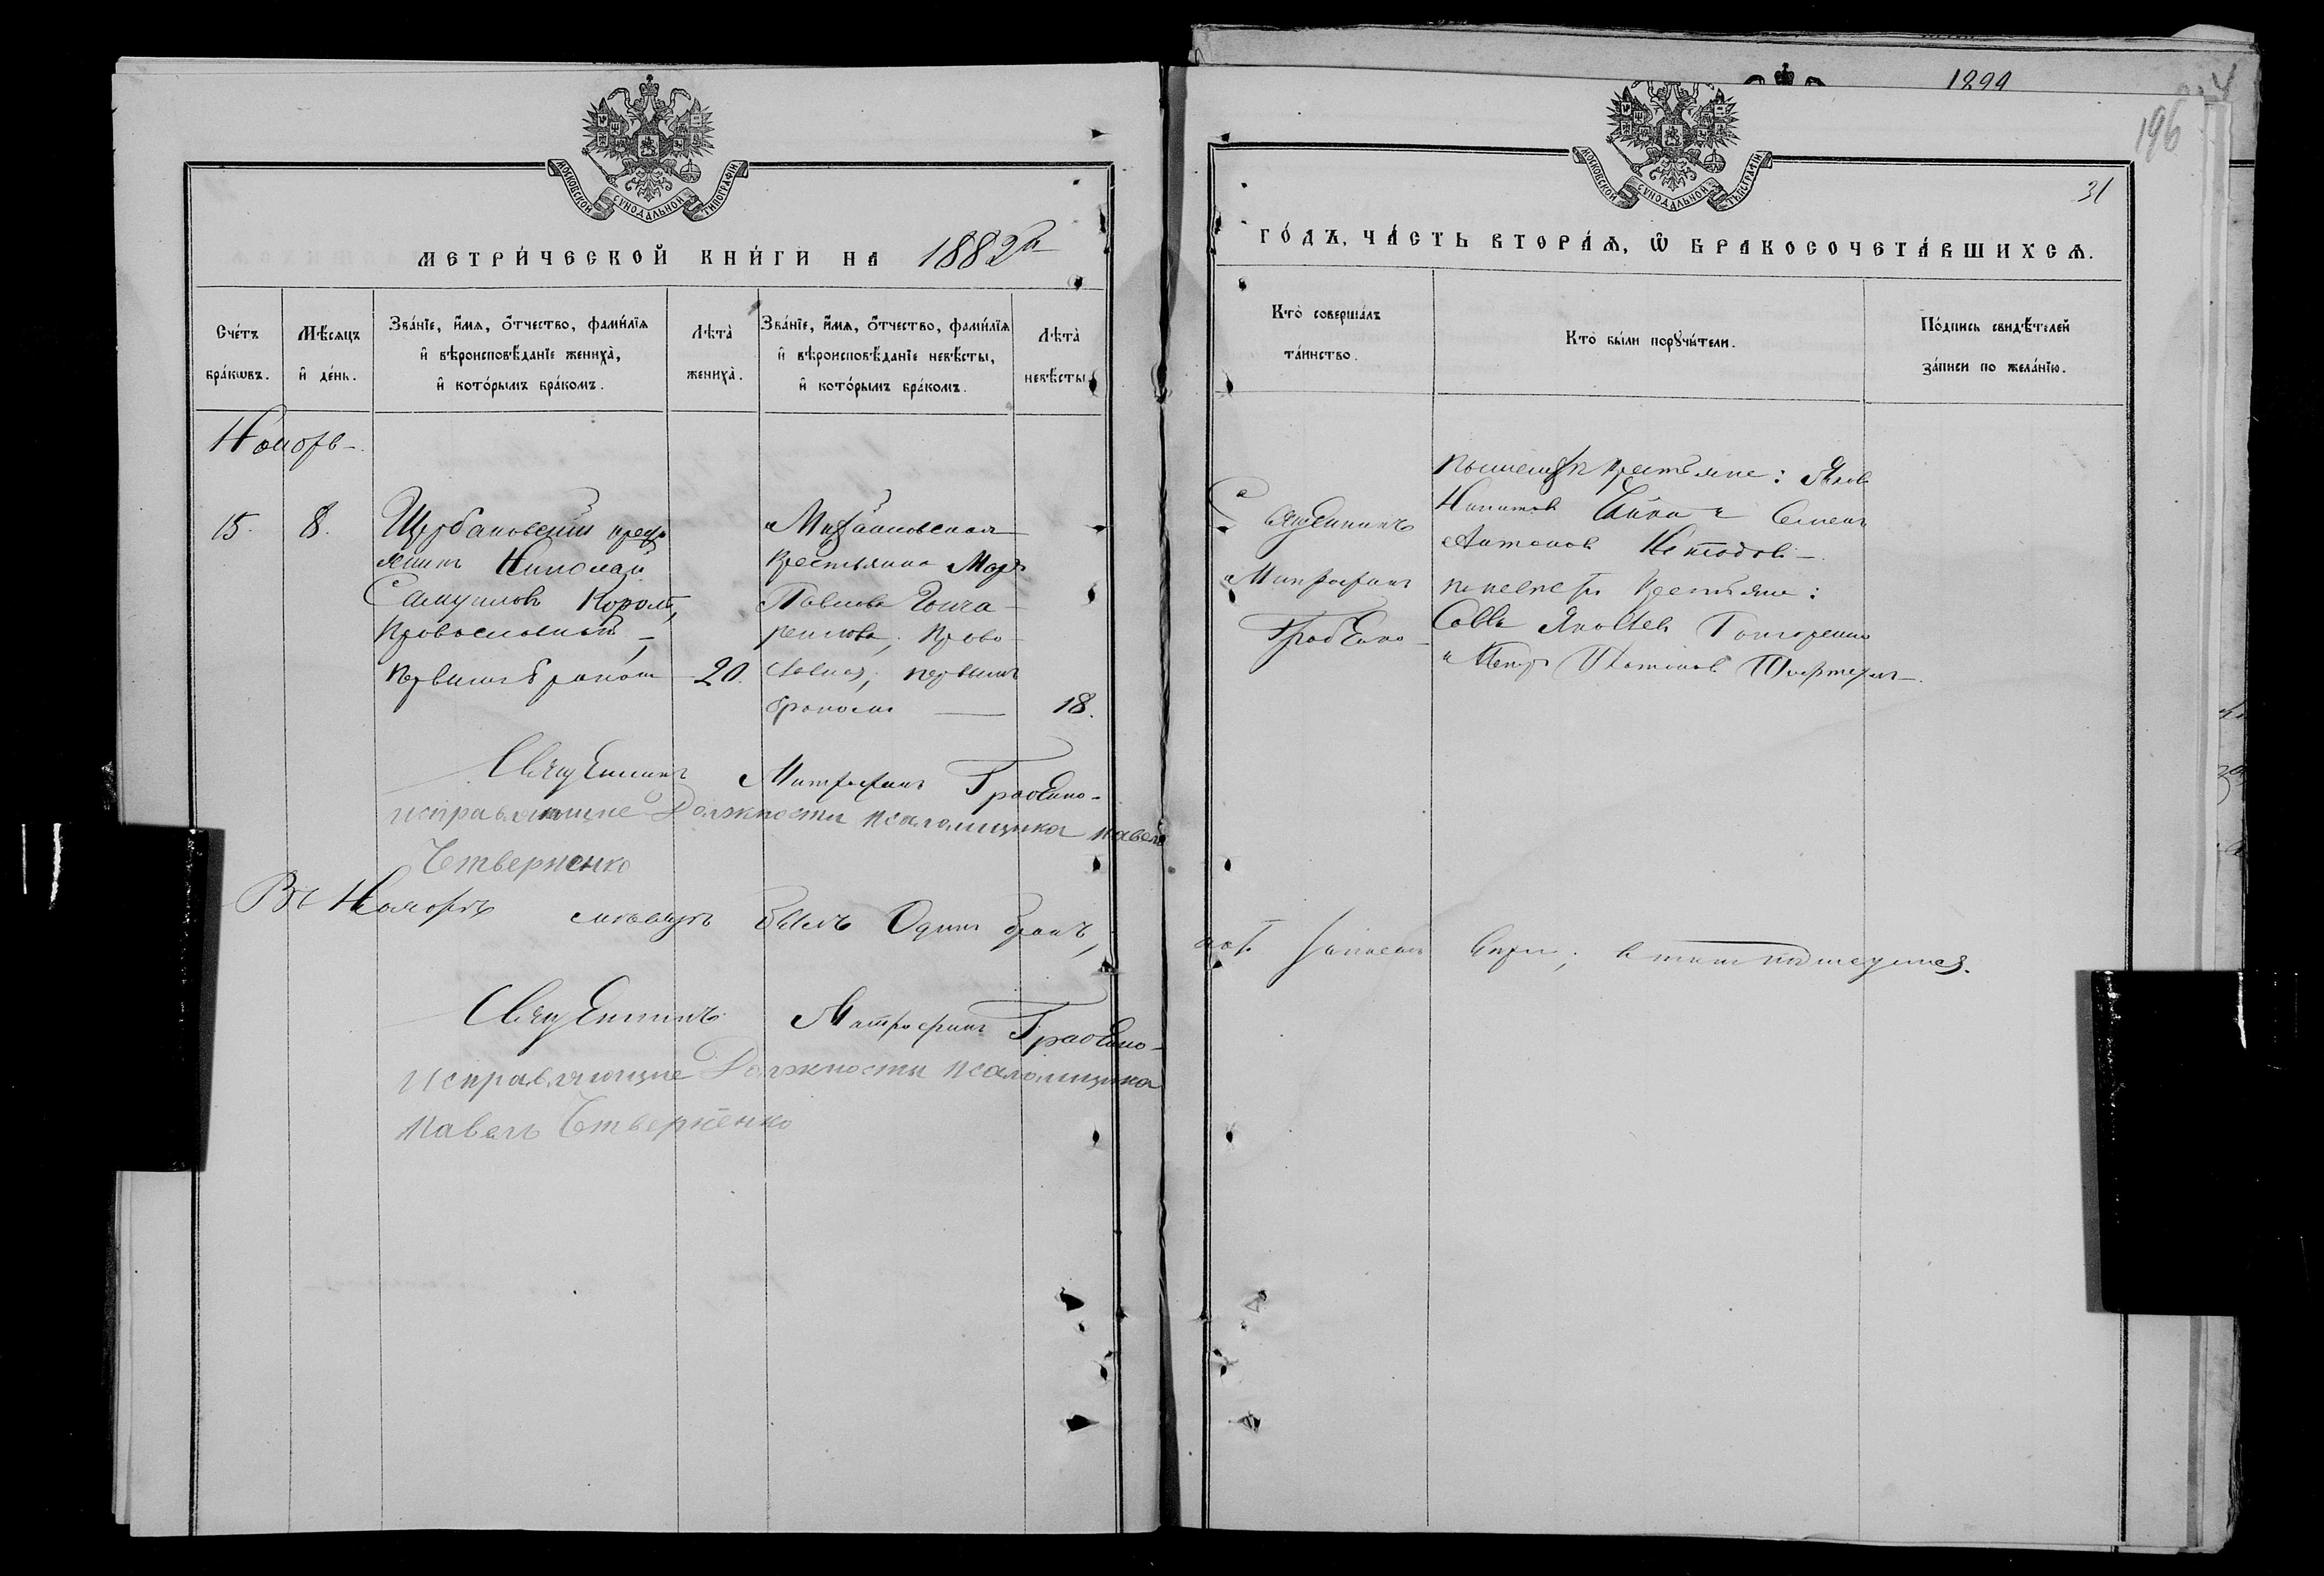 1899
196
МОСКОВСКОЙ СѴНОДАЛЬНОЙ ТИПОГРАФІИ
МЕТРИ́ЧЕСКОЙ КНИ́ГИ НА 1882й
Сче́тъ бра́кѡвъ.
Мѣ́сяцъ и҆ де́нь.
Зва́нїе, и҆́мѧ, ѻ҆́тчество, фамі́лїѧ
и҆ вѣроисповѣ́данїе жениха̀,
и҆ кото́рымъ бра́комъ.
Лѣ́та̀ жениха̀.
Зва́нїе, и҆́мѧ, ѻ҆́тчество, фамі́лїѧ
и҆ вѣроисповѣ́данїе невѣ́сты,
и҆ кото́рымъ бра́комъ.
Лѣ́та̀ невѣ́сты
Ноябрь
15. 8.
Щербановскій кресть
янинъ Николай
Самуиловъ Король,
православный,
первымъ бракомъ 20.
Михайловская
крестьянка Мар
Павлова Гонча-
ренкова, право-
славная, первымъ
бракомъ 18.
Священникъ Митрофанъ Грабенко
исправляющие Должности псаломщика павелъ
Четверненко
Въ Ноябрѣ мѣсяцѣ былъ Одинъ бракъ,
Священникъ Митрофанъ Грабенко
Исправляющие Должности псаломщика
Павелъ Четверненко
МОСКОВСКОЙ СѴНОДАЛЬНОЙ ТИПОГРАФІИ
31
ГО́ДЪ, ЧА́СТЬ ВТОРА́Ѧ, Ѡ҆ БРАКОСОЧЕТА́ВШИХСѦ.
Кто̀ соверша́лъ
та́инство.
Кто̀ бы́ли порꙋчи́тели.
По́дпись свидѣ́телей
за́писи по жела́нїю.
Священникъ
Митрофанъ
Грабенко
по женихѣ крестьяне: Яковъ
Никитовъ и Семенъ
Антоновъ
по невѣстѣ крестьяне:
Савва Яковлевъ Гончаренко
и Петръ
записанъ вѣрно; въ томъ подписуемся.